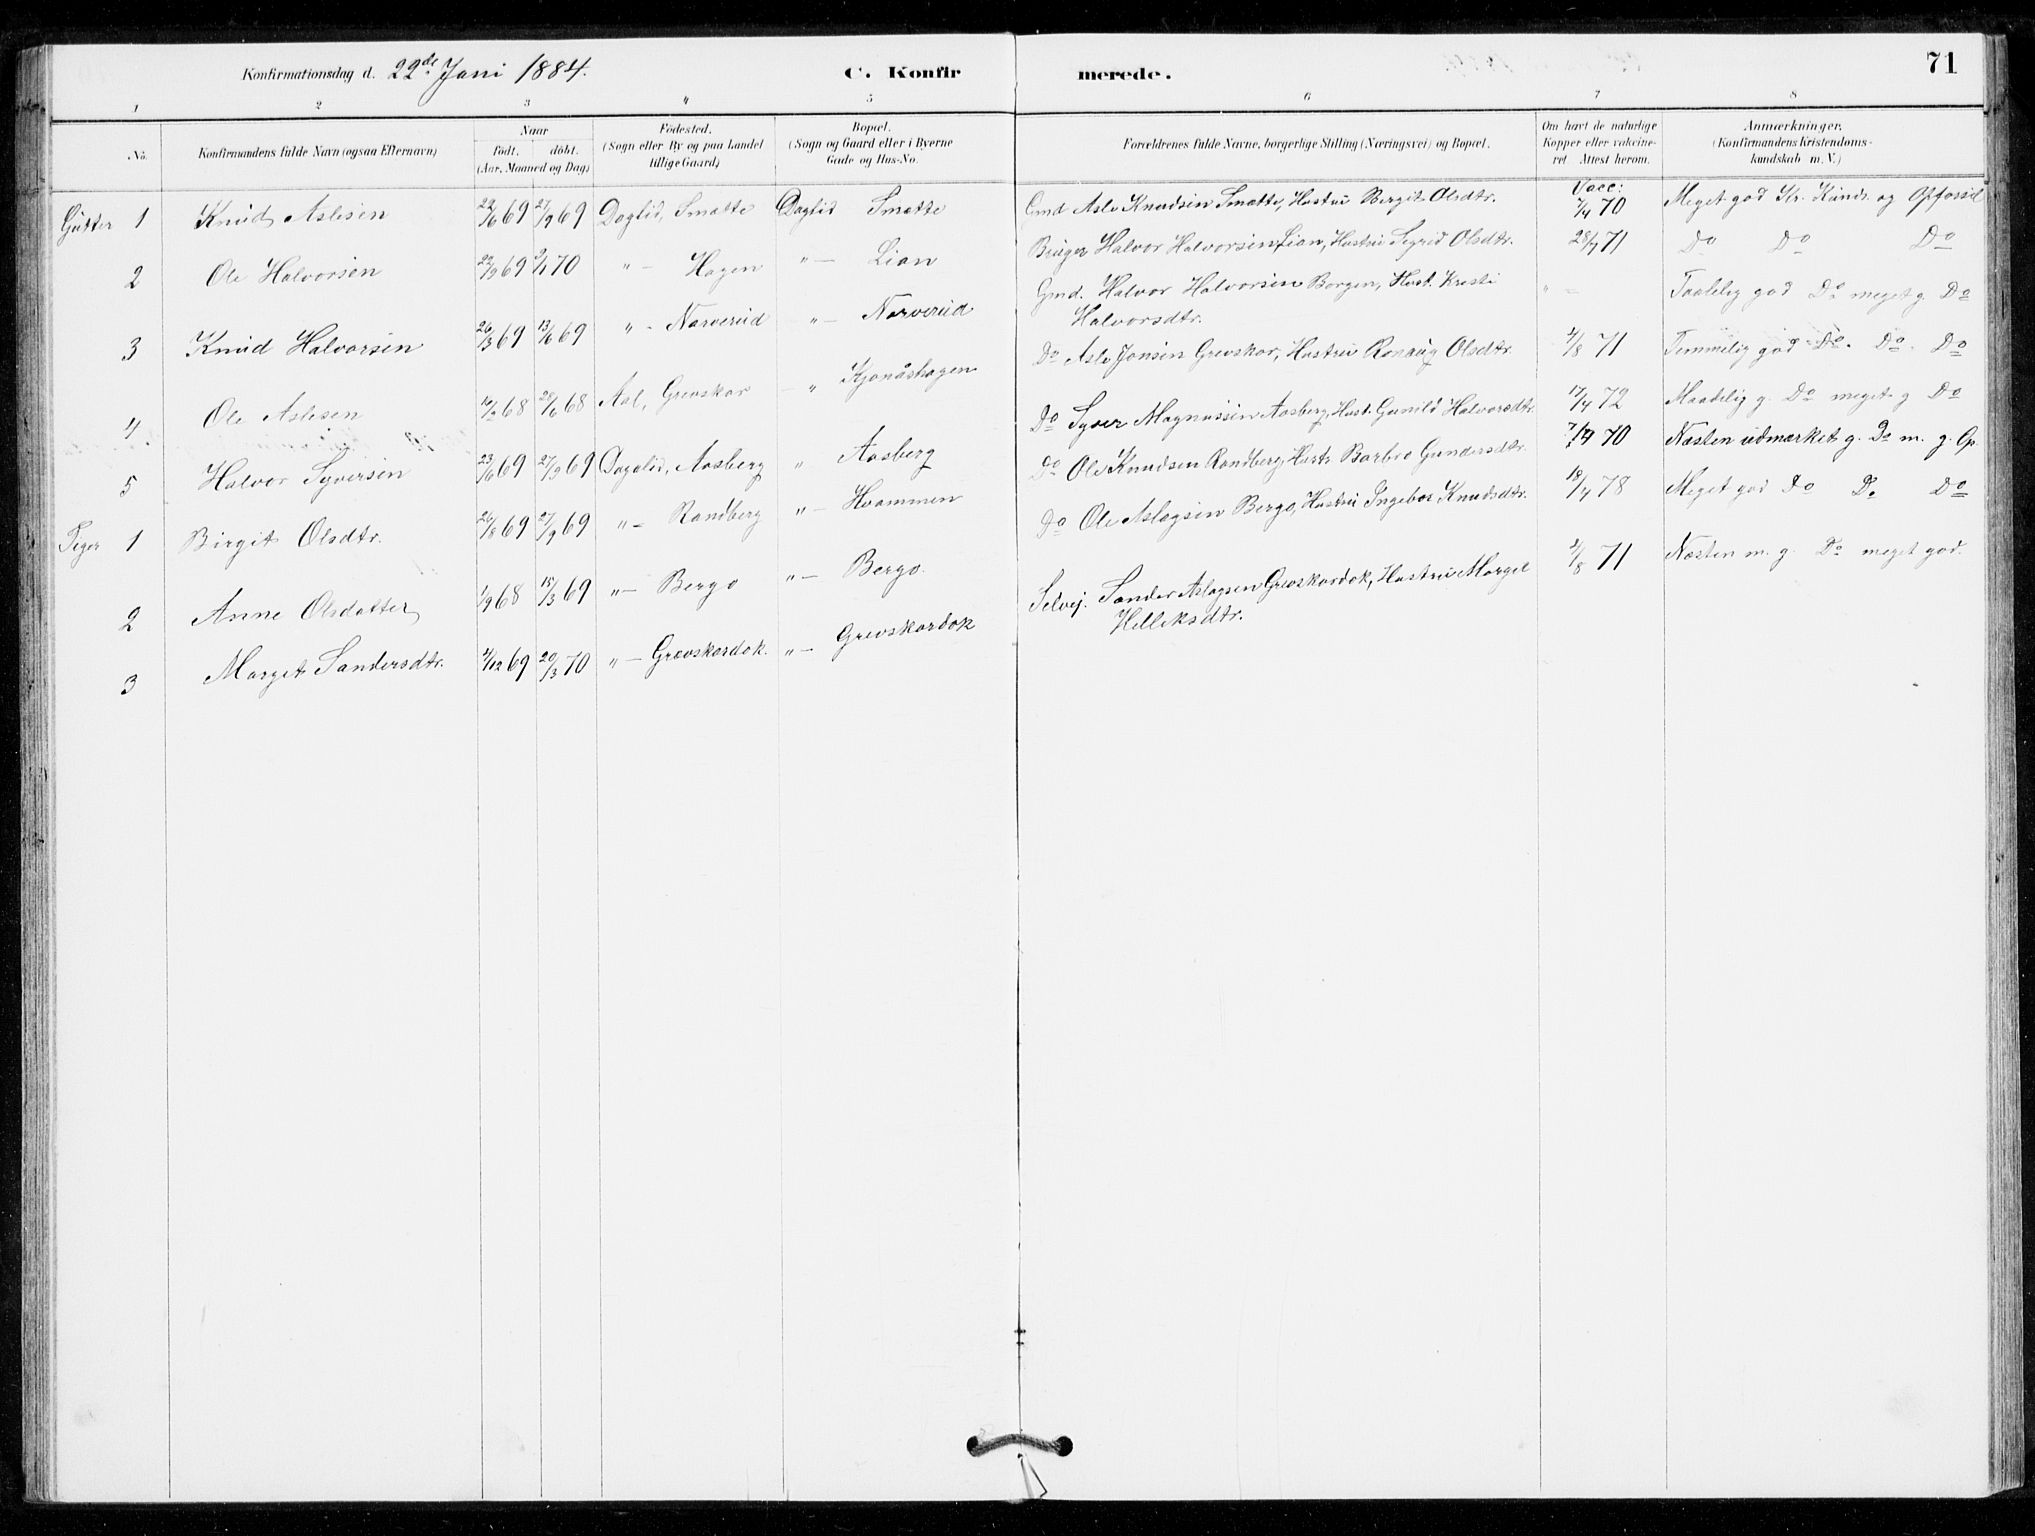 Konfirmationsdag d. 22de Juni 1884. C. Konfirmerede. 71
1 2 3 " 5 6 7 8
No. Konfirmandens fulde Navn (ogsaa Efternavn) Naar Födt. döbt. (Aar, Maaned og Dag) Födested. (Sogn eller By og paa Landet tillige Gaard) Bopæl. (Sogn og Gaard eller i Byerne Gade og Hus-No. Forældrenes fulde Navne, borgerlige Stilling (Næringsvei) og Bopæl. Om havt de naturlige Kopper eller vakcineret. Attest herom. Anmærkninger. (Konfirmandens Kristendomskundskab m. V.)
Gutter 1 Knud Aslesen 69 27/9 69 Daglid, Smætte Daglid Smætte Gmd Asle Knudsen Smætte, Hustru Bergit Olsdtr. Vacc: 7/4 70 Meget god Kr. Kunds. og
2 Ole Halvorsen 22/9 69 70 " – Hagen " – Lian Bruger Halvor Halvorsen Lian, Hustru Sigrid Olsdtr. 28/7 71 Do Do Do
3 Knud Halvorsen 26/3 69 13/6 69 " – Narverud " – Narverud Gmd. Halvor Halvorsen Borgen, Hust. Kristi Halvorsdtr. " – Taalelig god Do meget g. Do
4 Ole Aslesen 68 28/6 68 Aal, Grevskar – " Kjonåshagen Do Asle Jonsen Grevskar, Hustru Ronaug Olsdtr. 71 Temmelig god Do. Do. Do
5 Halvor Syversen 23/6 69 27/9 69 Dagalid, Aasberg " Aasberg Do Syver Magnussen Aasberg, Hust. Gunild Halvorsdtr. 17/4 72 Maadelig g. Do meget g Do
Piger 1 Birgit Olsdtr. 26/8 69 27/9 69 " – Randberg " – Hvammen Do Ole Knudsen Randberg, Hustr. Barbro Gundersdtr. 70 Næsten udmærket g. Do m. g. Op.
2 Anne Olsdatter 1/9 68 15/3 69 " – Bergo " – Bergo. Do Ole Aslagsen Bergo, Hustru Ingebor Knudsdtr. 18/7 78 Meget god Do Do Do
3 Margit Sandersdtr. 69 20/3 70 " – Grevskardok. " – Grevskardok Selvej. Sander Aslagsen Grevskardok, Hustru Margit Helleksdtr. 71 Næsten m. g. Do meget god.